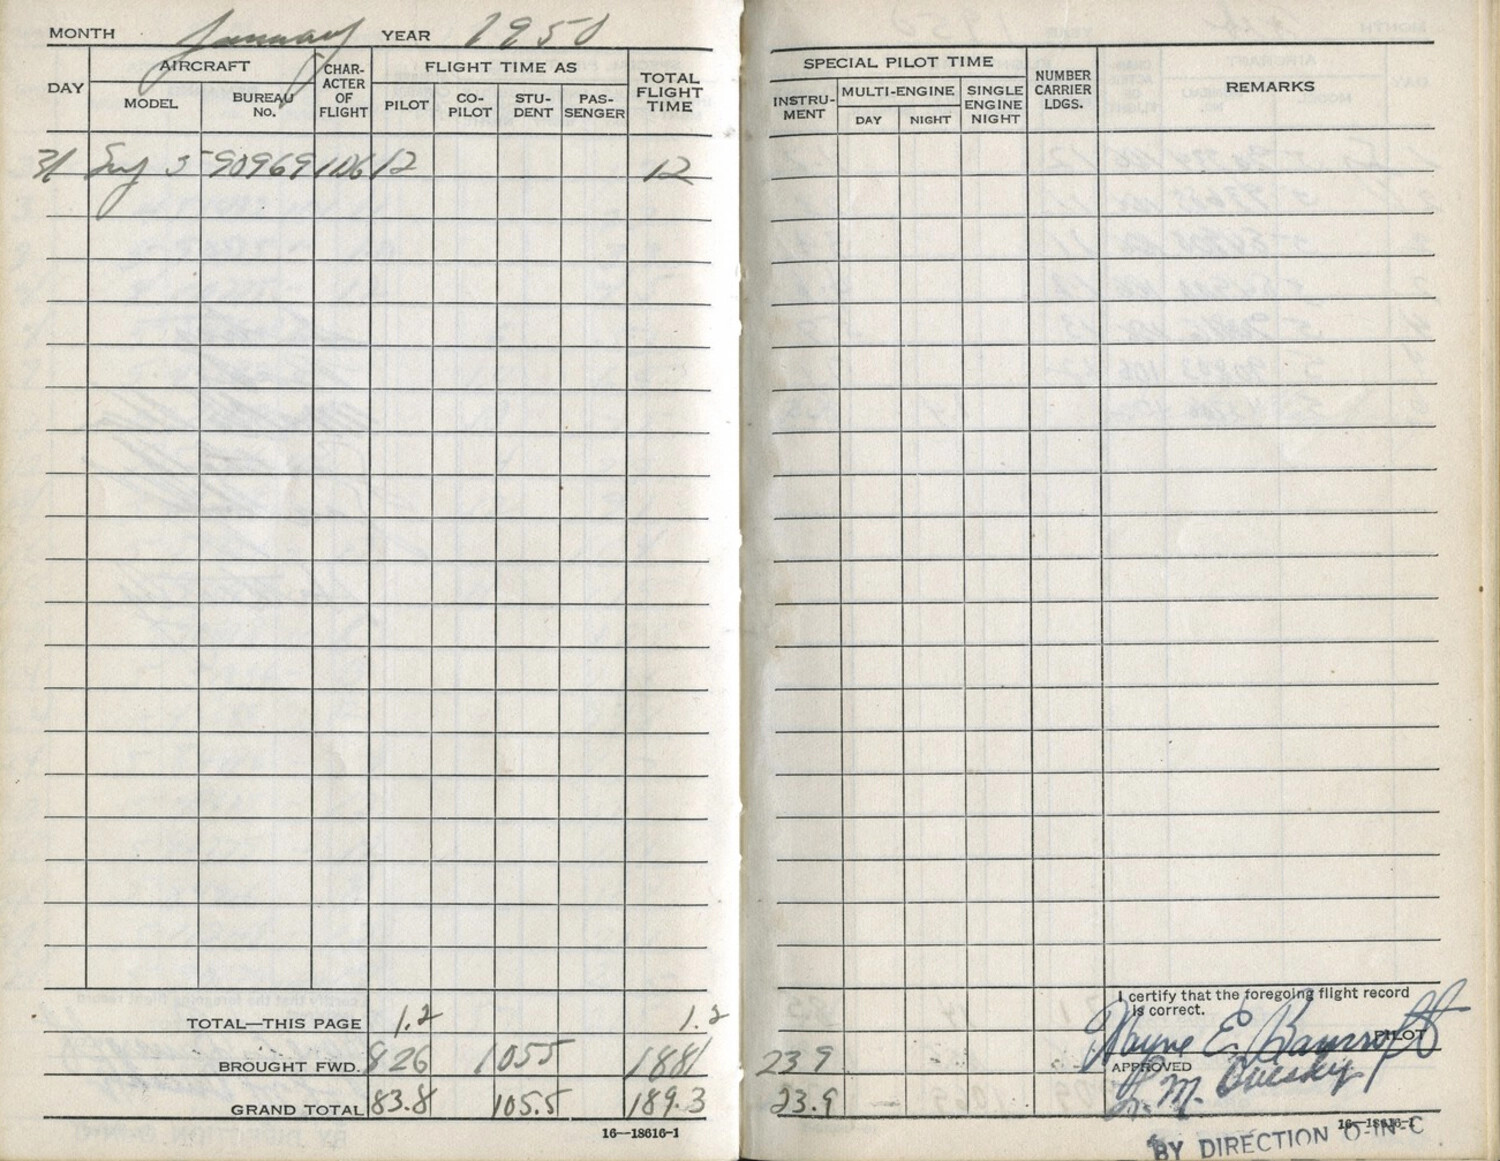 MONTH January YEAR 1950
DAY AIRCRAFT CHARACTER OF FLIGHT FLIGHT TIME AS TOTAL FLIGHT TIME
MODEL BUREAU NO. PILOT CO-PILOT STU-DENT PAS-SENGER
31 Snj 5 90969 1D6 12 12
TOTAL—THIS PAGE 1.2 1.2
BROUGHT FWD. 826 1055 1881
GRAND TOTAL 83.8 105.5 189.3
16—18616-1
SPECIAL PILOT TIME NUMBER CARRIER LDGS. REMARKS
INSTRU-MENT MULTI-ENGINE SINGLE ENGINE NIGHT
DAY NIGHT
I certify that the foregoing flight record
is correct.
Wayne E. Bancroft PILOT
23 9
APPROVED
23.9 —
16—18616-1
BY DIRECTION O-IN-C